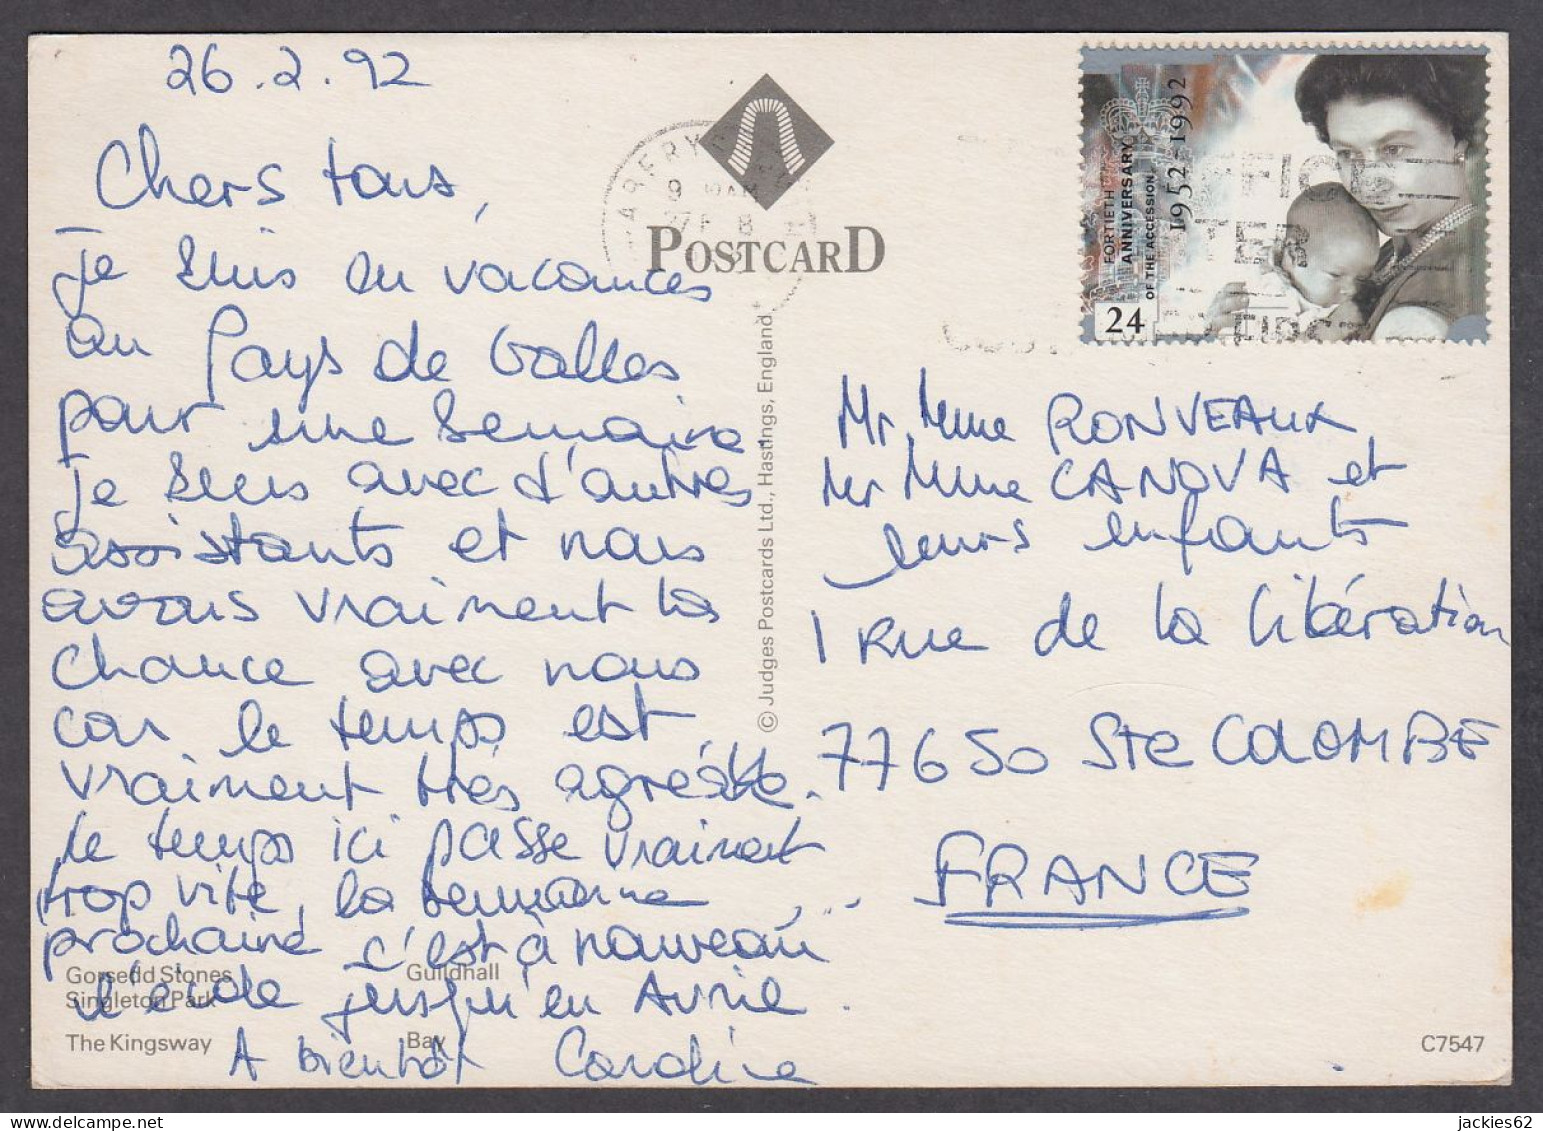 26.2.92
Chers tous,
je suis en vacances
au Pays de Galles
pour une semaine.
je suis avec d'autres
assistants et nous
avons vraiment la
chance avec nous
car le temps est
vraiment très agréable.
le temps ici passe vraiment
trop vite, la semaine
prochaine c'est à nouveau
l'école jusqu'en Avril.
A bientôt Caroline
Gorsedd Stones
Singleton Park
The Kingsway
Guildhall
Bay
POSTCARD
© Judges Postcards Ltd., Hastings, England.
9
27 FEB
FORTIETH
ANNIVERSARY
OF THE ACCESSION
1952-1992
24
Mr, Mme RONVEAUX,
Mr Mme CANOVA et
leurs enfants
1 Rue de la libération
77650 Ste COLOMBE
FRANCE
C7547
jackies62